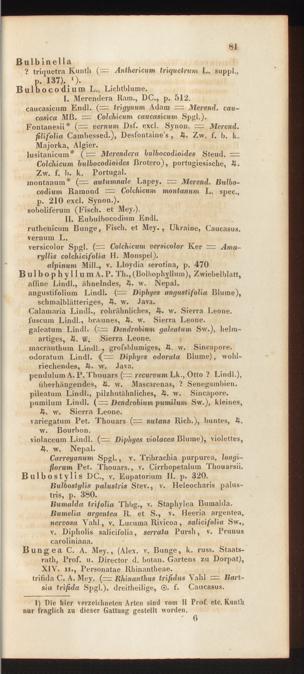 81
Bulbinella
? triquetra Kunth (= Anthericum triquetrum L. suppl.,
p. 137). ¹).
Bulbocodium L., Lichtblume.
I. Merendera Ram., DC., p. 512.
caucasicum Endl. (= trigynum Adam = Merend. cau-
casica MB. = Colchicum caucasicum Spgl.).
Fontanesii* (= vernum Dsf. excl. Synon. = Merend.
filifolia Cambessed.), Desfontaine's, ♃. Zw. f. b. k.
Majorka, Algier.
lusitanicum* (= Merendera bulbocodioides Steud. =
Colchicum bulbocodioides Brotero), portugiesische, ♃.
Zw. f. b. k. Portugal.
montanum* (= autumnale Lapey. = Merend. Bulbo-
codium Ramond = Colchicum montanum L. spec.,
p. 210 excl. Synon.).
soboliferum (Fisch. et Mey.).
II. Eubulbocodium Endl.
ruthenicum Bunge, Fisch. et Mey., Ukraine, Caucasus.
vernum L.,
versicolor Spgl. (= Colchicum versicolor Ker = Ama-
ryllis colchicifolia H. Monspel).
alpinum Mill., v. Lloydia serotina, p. 470
Bulbophyllum A. P. Th., (Bolbophyllum), Zwiebelblatt,
affine Lindl., ähnelndes, ♃. w. Nepal.
angustifolium Lindl. (= Diphyes angustifolia Blume),
schmalblätteriges, ♃. w. Java.
Calamaria Lindl., rohrähnliches, ♃. w. Sierra Leone.
fuscum Lindl., braunes, ♃. w. Sierra Leone.
galeatum Lindl. (= Dendrobium galeatum Sw.), helm-
artiges, ♃. w. Sierra Leone.
macranthum Lindl., großblumiges, ♃. w. Sincapore.
odoratum Lindl. (= Diphyes odorata Blume), wohl-
riechendes, ♃. w. Java.
pendulum A. P. Thouars (= recurvum Lk., Otto ? Lindl.),
überhängendes, ♃. w. Mascarenas, ? Senegumbien.
pileatum Lindl., pilzhutähnliches, ♃. w. Sincapore.
pumilum Lindl. (= Dendrobium pumilum Sw.), kleines,
♃. w. Sierra Leone.
variegatum Pet. Thouars (= nutans Rich.), buntes, ♃.
w. Bourbon.
violaceum Lindl. (= Diphyes violacea Blume), violettes,
♃. w. Nepal.
Carreyanum Spgl., v. Tribrachia purpurea, longi-
florum Pet. Thouars., v. Cirrhopetalum Thouarsii.
Bulbostylis DC., v. Eupatorium II. p. 320.
Bulbostylis palustris Stev., v. Heleocharis palus-
tris, p. 380.
Bumalda trifolia Thbg., v. Staphylea Bumalda.
Bumelia argentea R. et S., v. Heeria argentea,
nervosa Vahl, v. Lucuma Rivicoa, salicifolia Sw.,
v. Dipholis salicifolia, serrata Pursh, v. Prunus
caroliniana.
Bungea C. A. Mey., (Alex. v. Bunge, k. russ. Staats-
rath, Prof. u. Director d. botan. Gartens zu Dorpat),
XIV. II., Personatae Rhinantheae.
trifida C. A. Mey. (= Rhinanthus trifidus Vahl = Bart-
sia trifida Spgl.), dreitheilige, ☉. f. Caucasus.
1) Die hier verzeichneten Arten sind vom H Prof etc. Kunth
nur fraglich zu dieser Gattung gestellt worden.
6